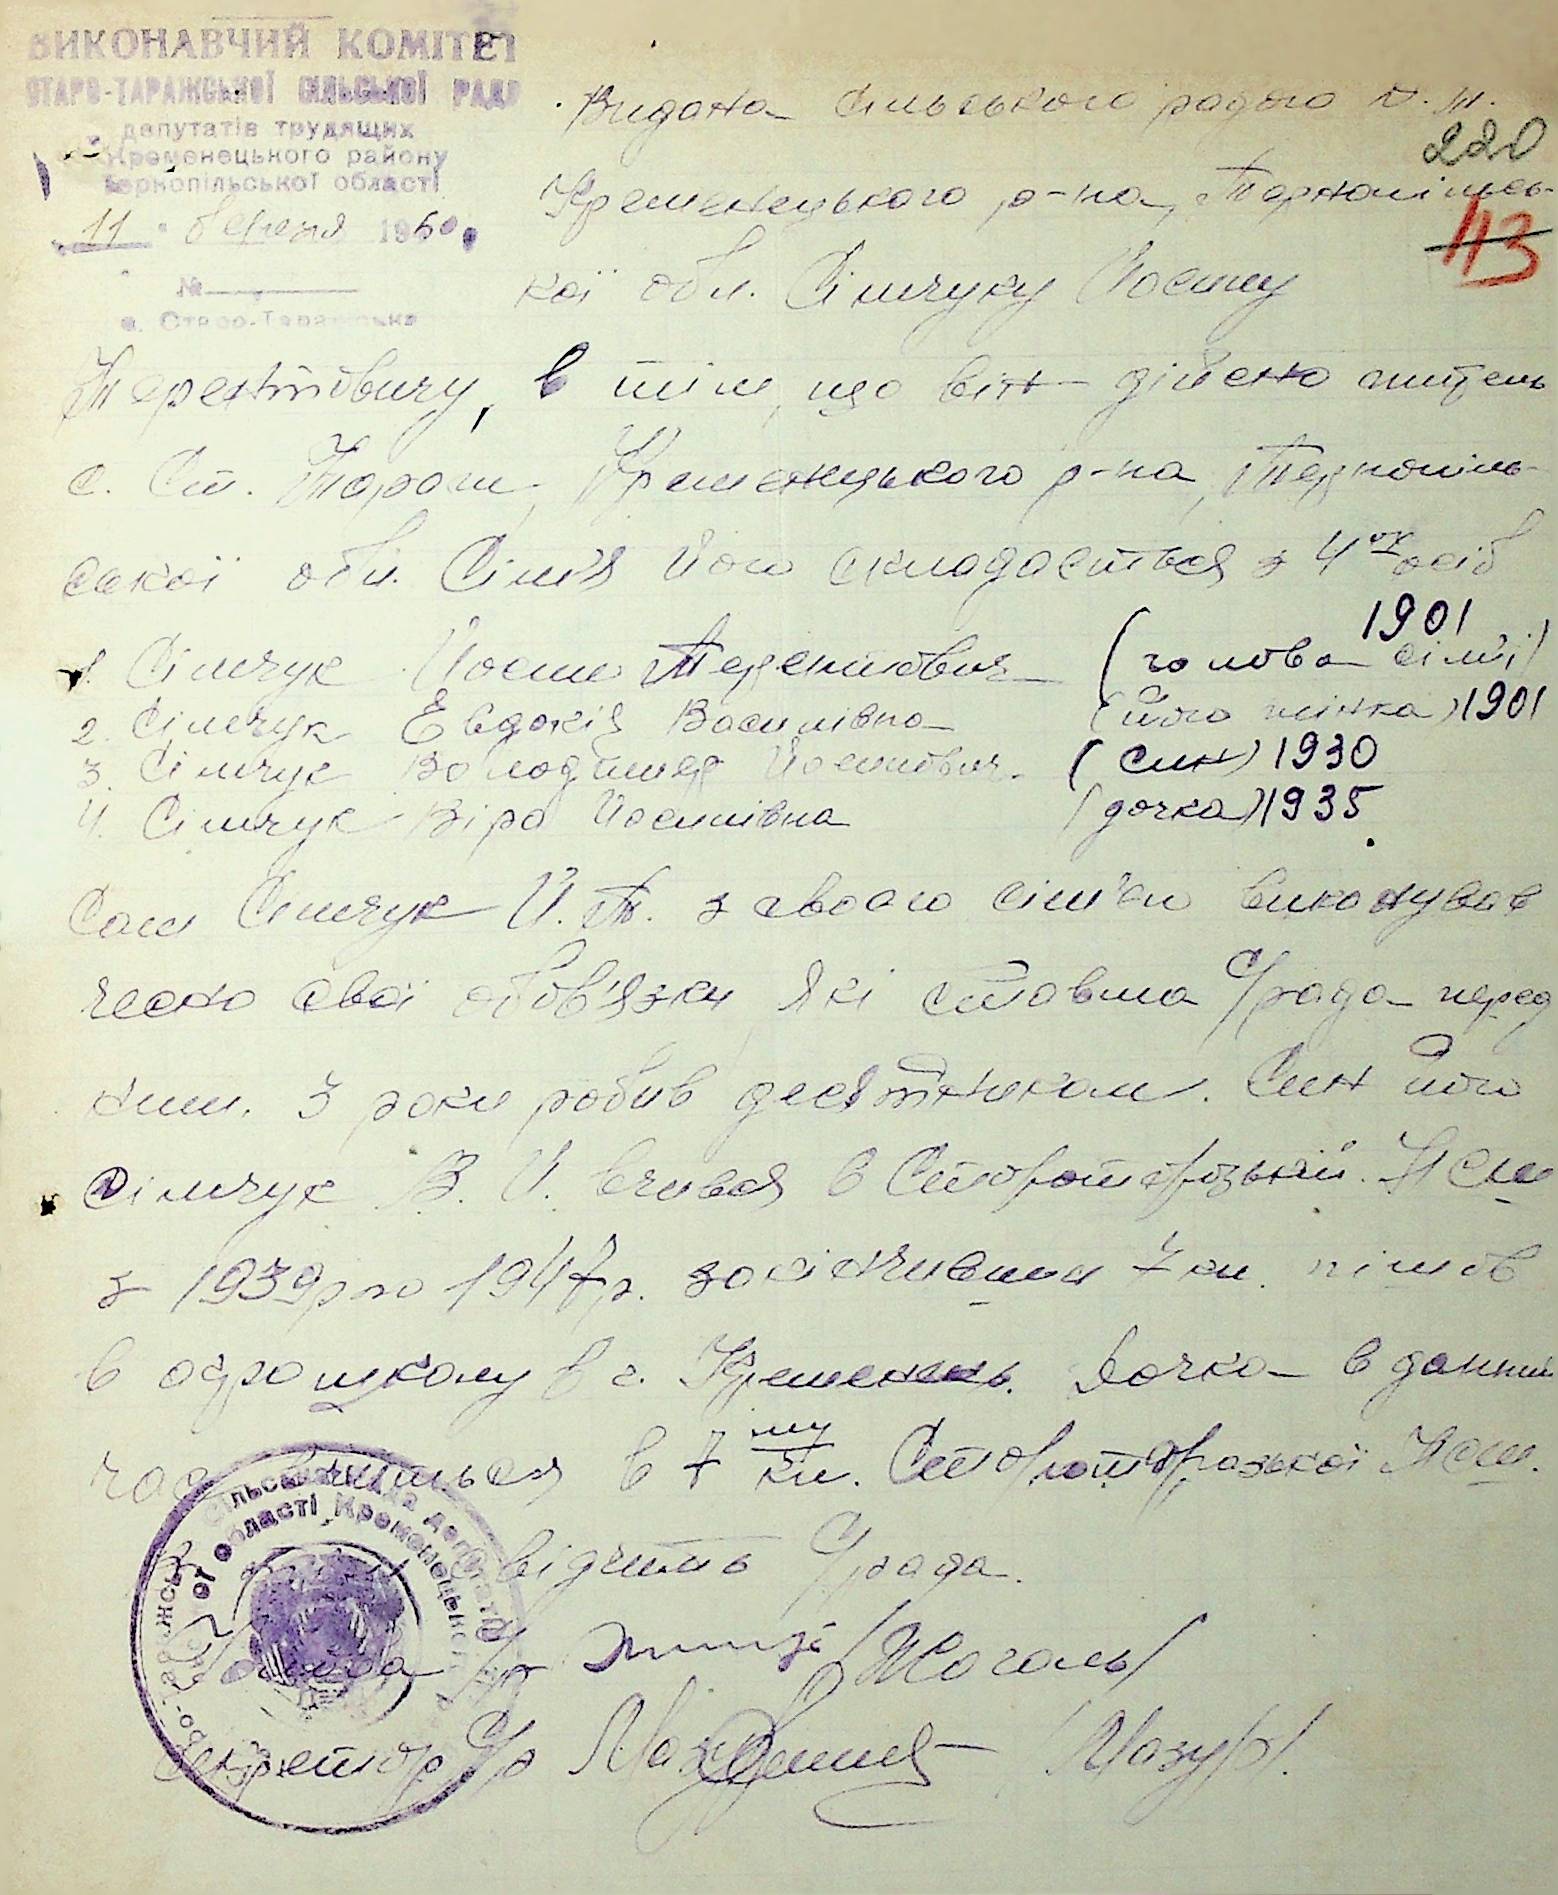 ВИКОНАВЧИЙ КОМІТЕТ
СТАРО-ТАРАЖСЬКОЇ СІЛЬСЬКОЇ РАДИ
депутатів трудящих
Кременецького району
Тернопільської області
11 березня 1950
№
с. Старо-Таражська
Видана сільською радою с. т.
220
Кременецького р-на, Тернопільсь-
113
кої обл. Сімчуку Йосипу
Терентовичу, в тім, що він дійсно житель
с. Ст. Тараж, Кременецького р-на, Тернопіль-
ської обл. Сім'я його складається з 4ох осіб
1901
1. Сімчук Йосип Терентович (голова сім'ї)
2. Сімчук Евдокія Василівна (його жінка) 1901
3. Сімчук Володимир Йосипович (син) 1930
4. Сімчук Віра Йосипівна (дочка) 1935
Сам Сімчук Й. Т. з своєю сім'єю виконував
чесно свої обов'язки які ставила С/рада перед
ним. 3 роки робив десятником. Син його
Сімчук В. Й. вчився в Старотаразькій НСШ
з 1939р по 1947р. закінчивши 7 кл. пішов
в агрошколу в г. Кременець. Дочка в данний
час вчиться в 7му кл. Старотаразької НСШ.
свідчить С/рада.
Голова С/р /Жогаль/
Секретар С/р /Мазур/.